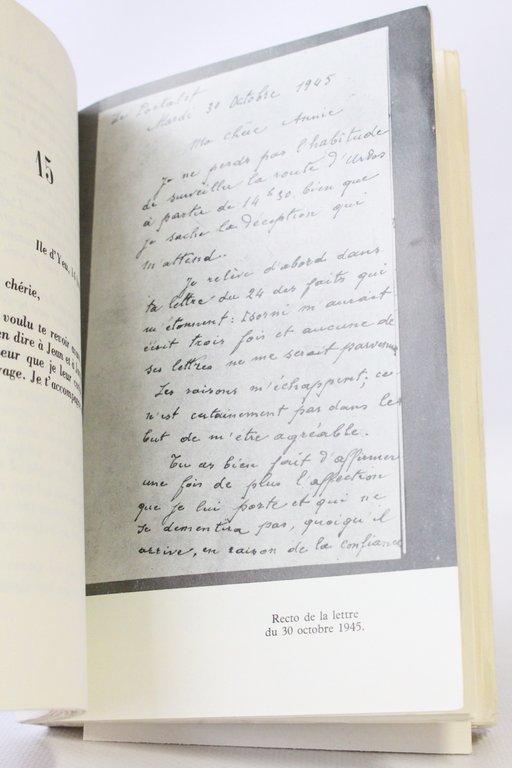 15
Ile d'Yeu, 
chérie,
voulu te revoir
en dire à Jean et à
eur que je leur
yage. Je t'accompagne
Le Portalet
Mardi 30 Octobre 1945
Ma chère Annie
Je ne perds pas l'habitude
de surveiller la route d'Urdos
à partir de 14h30, bien que
je sache la déception qui
m'attend.
Je relève d'abord dans
ta lettre du 24 des faits qui
m'étonnent : Isorni m'aurait
écrit trois fois et aucune de
ses lettres ne me serait parvenue
Les raisons m'échappent ; ce
n'est certainement pas dans le
but de m'être agréable.
Tu as bien fait d'affirmer
une fois de plus l'affection
que je lui porte et qui ne
se démentira pas, quoiqu'il
arrive, en raison de la confiance
Recto de la lettre
du 30 octobre 1945.